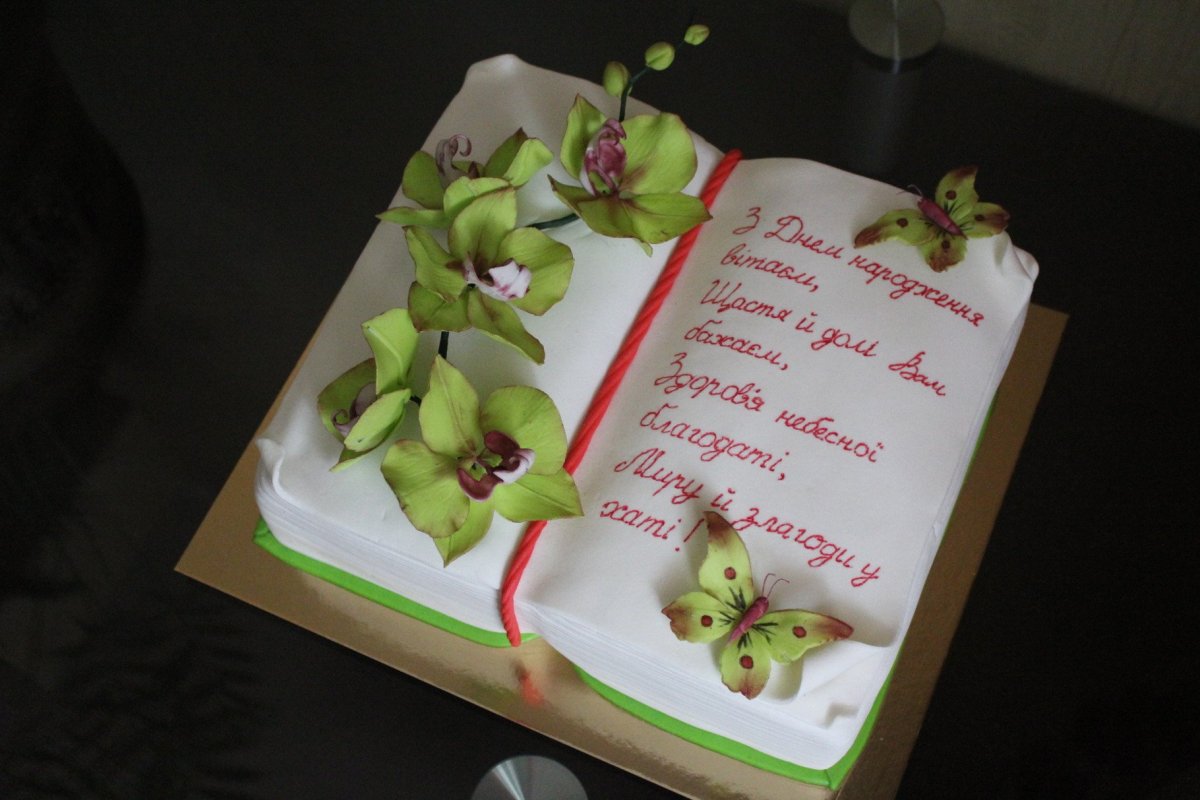 З Днем народження
вітаєм,
Щастя й долі Вам
бажаєм,
Здоров'я небесної
благодаті,
Миру й злагоди у
хаті!